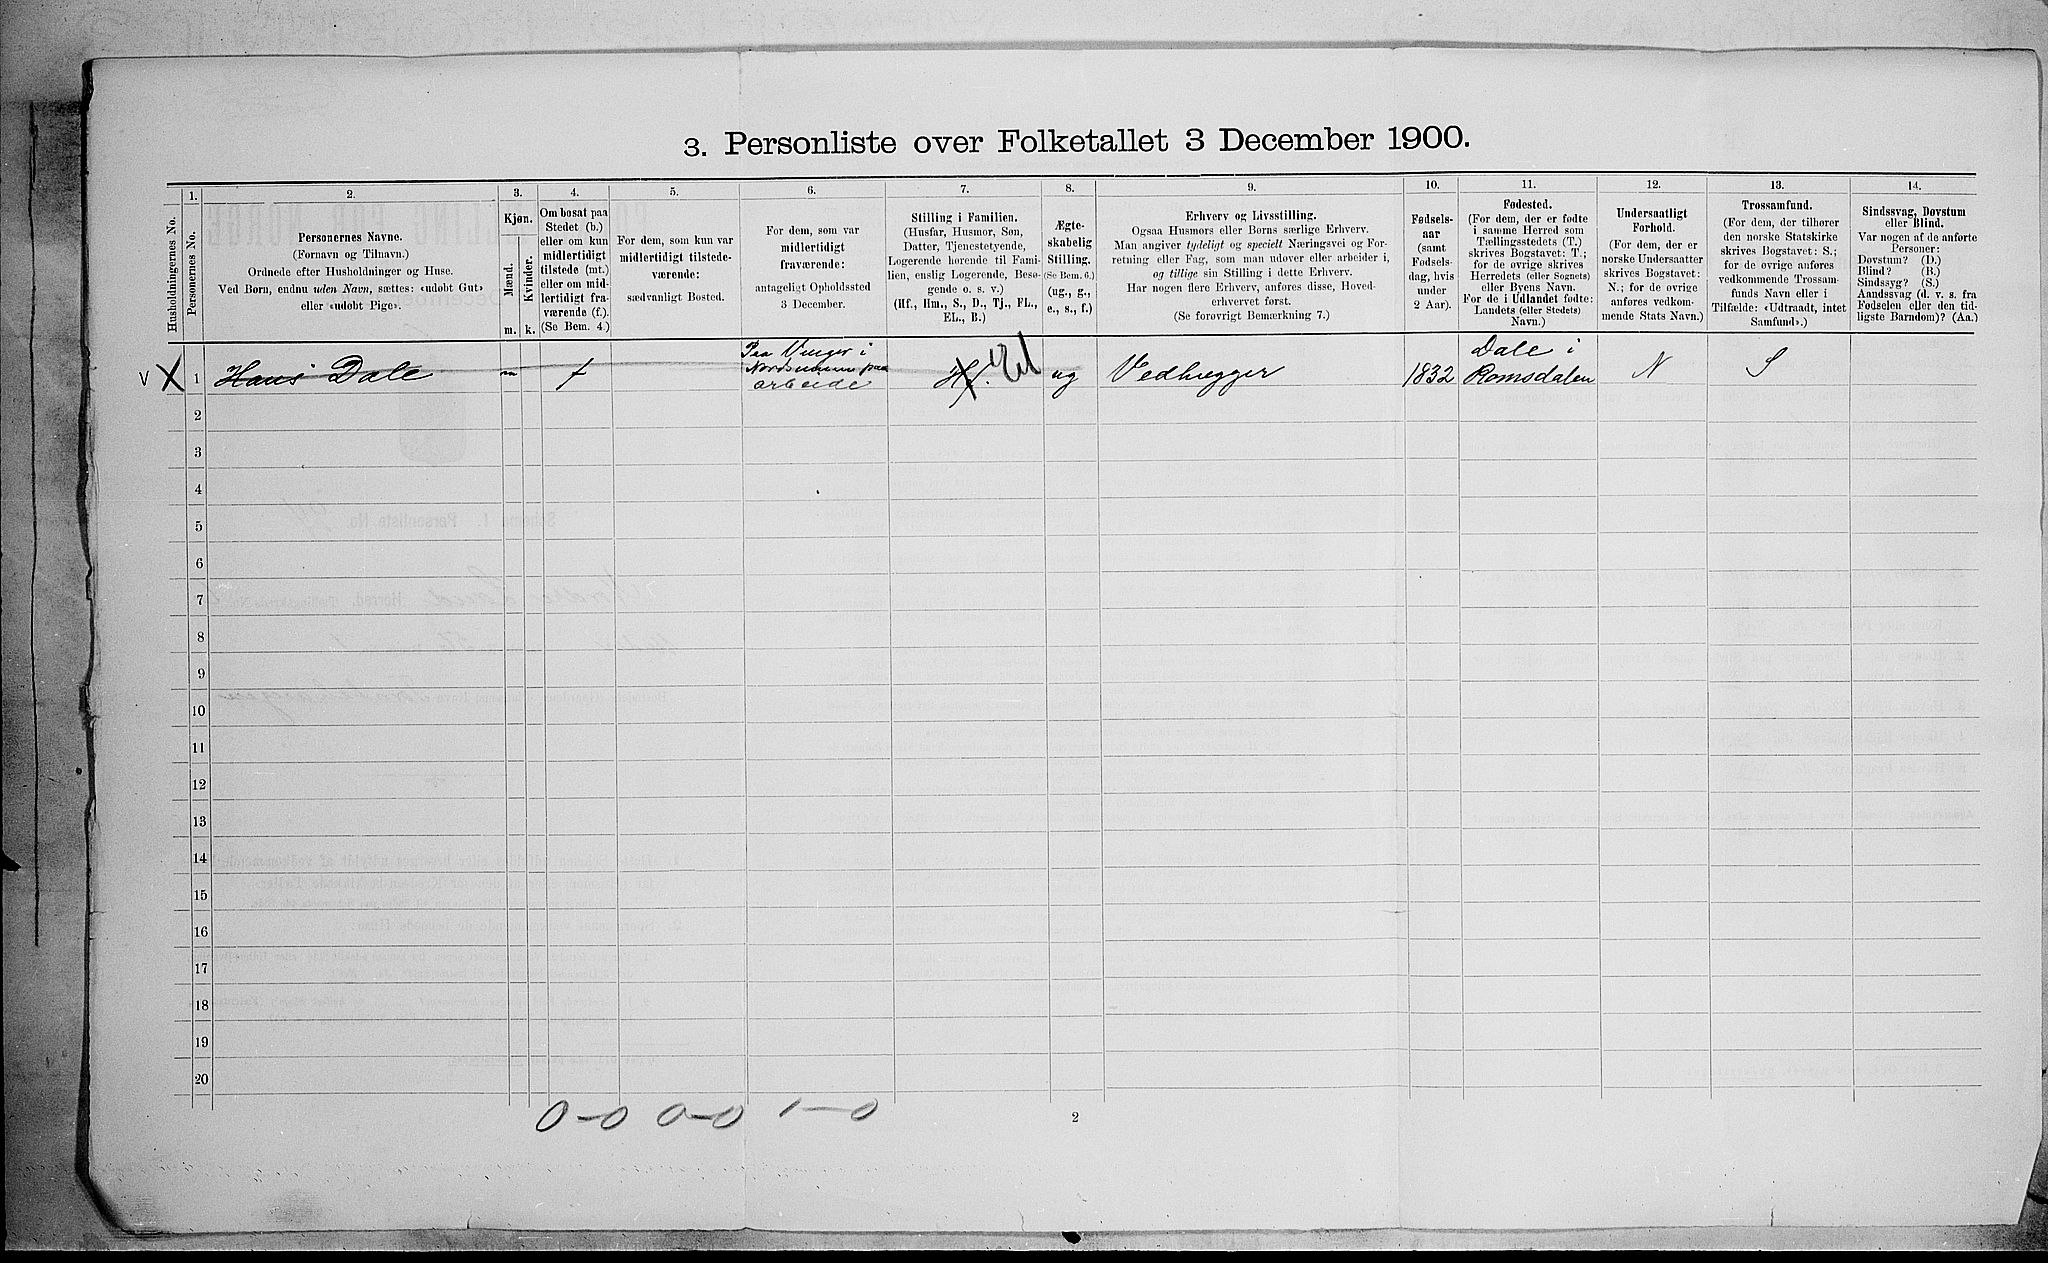 3. Personliste over Folketallet 3 December 1900.
1.
2.
3.
4.
5.
6.
7.
8.
9.
10.
11.
12.
13.
14.
Husholdningernes No.
Personernes No.
Personernes Navne.
(Fornavn og Tilnavn.)
Ordnede efter Husholdninger og Huse.
Ved Børn, endnu uden Navn, sættes: «udøbt Gut»
eller «udøbt Pige».
Kjøn.
Mænd.
Kvinder.
m.
k.
Om bosat paa
Stedet (b.)
eller om kun
midlertidigt
tilstede (mt.)
eller om mid-
lertidigt fra-
værende (f.).
(Se Bem. 4.)
For dem, som kun var
midlertidigt tilstede-
værende:
sædvanligt Bosted.
For dem, som var
midlertidigt
fraværende:
antageligt Opholdssted
3 December.
Stilling i Familien.
(Husfar, Husmor, Søn,
Datter, Tjenestetyende,
Logerende hørende til Fami-
lien, enslig Logerende, Besø-
gende o. s. v.)
(Hf., Hm., S., D., Tj., FL.,
EL., B.)
Ægte-
skabelig
Stilling.
(Se Bem. 6.)
(ug., g.,
e., s., f.)
Erhverv og Livsstilling.
Ogsaa Husmors eller Børns særlige Erhverv.
Man angiver tydeligt og specielt Næringsvei og For-
retning eller Fag, som man udøver eller arbeider i,
og tillige sin Stilling i dette Erhverv.
Har nogen flere Erhverv, anføres disse, Hoved-
erhvervet først.
(Se forøvrigt Bemærkning 7.)
Fødsels-
aar
(samt
Fødsels-
dag, hvis
under
2 Aar).
Fødested.
(For dem, der er fødte
i samme Herred som
Tællingsstedets (T.)
skrives Bogstavet: T.;
for de øvrige skrives
Herredets (eller Sognets)
eller Byens Navn.
For de i Udlandet fødte:
Landets (eller Stedets)
Navn.)
Undersaatligt
Forhold.
(For dem, der er
norske Undersaatter
skrives Bogstavet:
N.; for de øvrige
anføres vedkom-
mende Stats Navn.)
Trossamfund.
(For dem, der tilhører
den norske Statskirke
skrives Bogstavet: S.;
for de øvrige anføres
vedkommende Trossam-
funds Navn eller i
Tilfælde: «Udtraadt, intet
Samfund».)
Sindssvag, Døvstum
eller Blind.
Var nogen af de anførte
Personer:
Døvstum? (D.)
Blind? (B.)
Sindssyg? (S.)
Aandssvag (d. v. s. fra
Fødselen eller den tid-
ligste Barndom)? (Aa.)
V X 1 Hans Dale m f Paa i
paa
arbeide Hf. El ug Vedhugger 1832 Dale i
Romsdalen N S
2
3
4
5
6
7
8
9
10
11
12
13
14
15
16
17
18
19
20
0-0 0-0 1-0
2